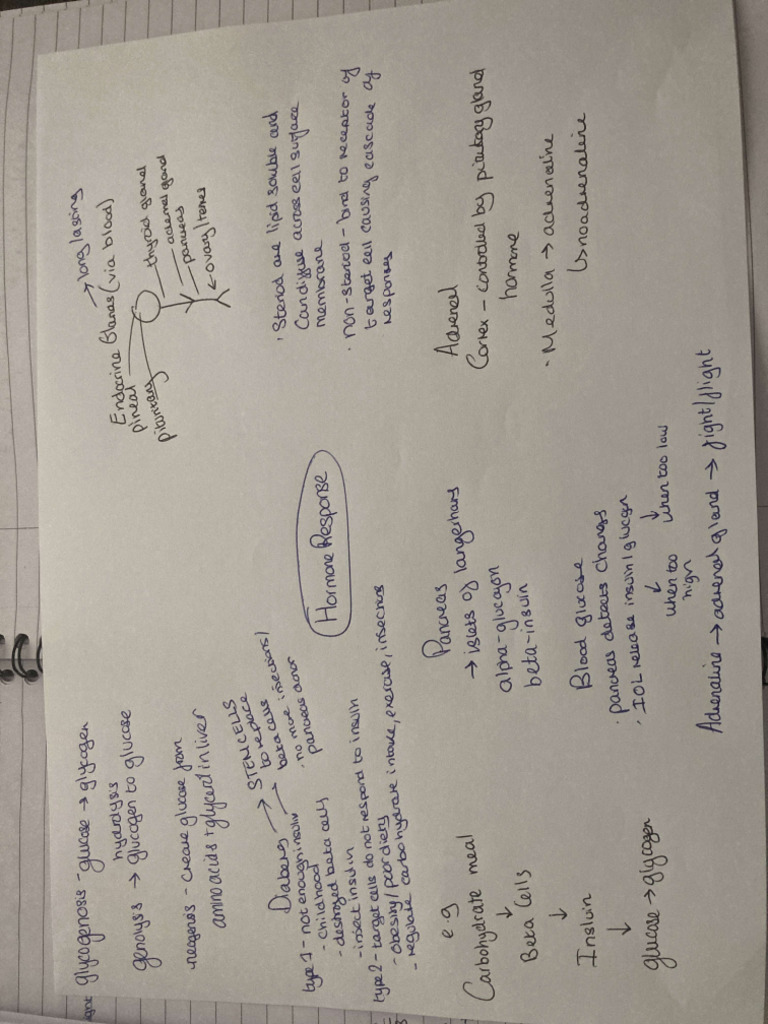 glycogenosis - glucose → glycogen
hydrolysis
genolysis → glucogen to glucose
neogenosis - create glucose from
amino acids + glycerol in liver
Endocrine Glands (via blood)
→ long lasting
pineal
pituitary
thyroid gland
adrenal gland
pancreas
← ovary/testes
Diabetes
→ STEM CELLS
to replace
beta cells
• no more injections/
• no more
pancreas donor
type 1 - not enough insulin
- childhood
- destroyed beta cells
- inject insulin
type 2 - target cells do not respond to insulin
- obesity / poor diety
- regulate carbohydrate intake, exercise, injections
Hormone Response
• Steroid are lipid soluble and
can diffuse across cell surface
membrane
• non-steroid - bind to receptor of
target cell causing cascade of
responses
e.g
Carbohydrate meal
↓
Beta Cells
↓
Insluin
↓
glucose → glycogen
Pancreas
→ islets of langerhans
alpha - glucagon
beta - insulin
Blood glucose
• pancreas detects changes
• IOL release insulin / glucagen
↓ ↓
when too high
when too low
Adrenaline → adrenal gland → fight/flight
Adrenal
Cortex - controlled by pituitary gland
hormone
• Medulla → adrenaline
↳ noadrenaline